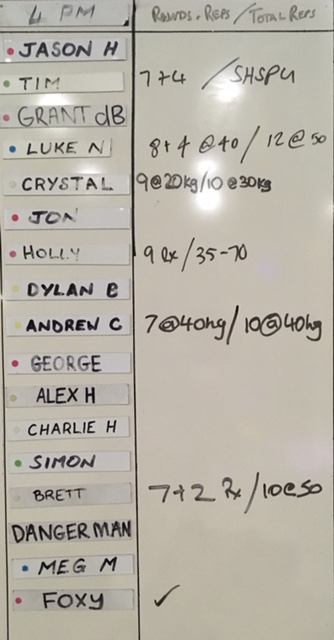 4 PM ROUNDS + REPS / TOTAL REPS
JASON H
TIM 7+4 / SHSPU
GRANT dB
LUKE N 8+4 @40 / 12@50
CRYSTAL 9@20kg/10@30kg
JON
HOLLY 9 Rx / 35-70
DYLAN B
ANDREW C 7@40kg/10@40kg
GEORGE
ALEX H
CHARLIE H
SIMON
BRETT 7+2 Rx/10@50
DANGERMAN
MEG M
FOXY ✓